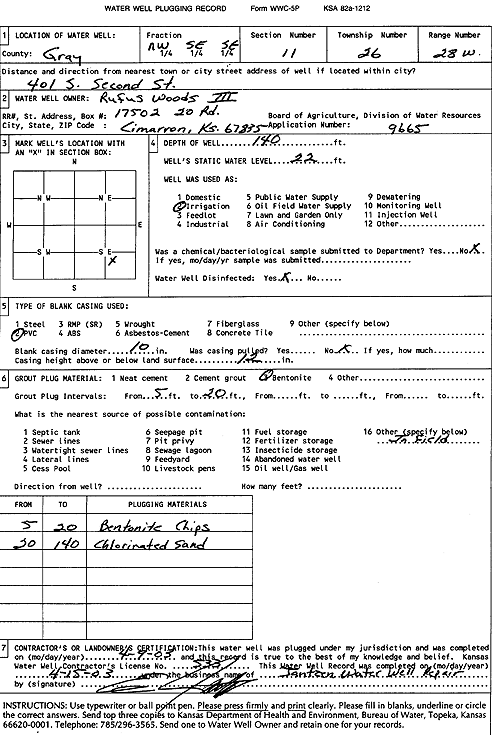 WATER WELL PLUGGING RECORD Form WWC-5P KSA 82a-1212
1 LOCATION OF WATER WELL: Fraction Section Number Township Number Range Number
County: Gray NW 1/4 SE 1/4 SE 1/4 11 26 28 W
Distance and direction from nearest town or city street address of well if located within city?
401 S. Second St.
2 WATER WELL OWNER: Rufus Woods III
RR#, St. Address, Box #: 17502 20 Rd. Board of Agriculture, Division of Water Resources
City, State, ZIP Code : Cimarron, Ks. 67835 Application Number: 9665
3 MARK WELL'S LOCATION WITH AN "X" IN SECTION BOX:
N
N W N E
W E
S W S E
X
S
4 DEPTH OF WELL.....140..........ft.
WELL'S STATIC WATER LEVEL...22....ft.
WELL WAS USED AS:
1 Domestic 5 Public Water Supply 9 Dewatering
2 Irrigation 6 Oil Field Water Supply 10 Monitoring Well
3 Feedlot 7 Lawn and Garden Only 11 Injection Well
4 Industrial 8 Air Conditioning 12 Other............
Was a chemical/bacteriological sample submitted to Department? Yes....No X
If yes, mo/day/yr sample was submitted.....................
Water Well Disinfected: Yes X... No......
5 TYPE OF BLANK CASING USED:
1 Steel 3 RMP (SR) 5 Wrought 7 Fiberglass 9 Other (specify below)
2 PVC 4 ABS 6 Asbestos-Cement 8 Concrete Tile
Blank casing diameter...10...in. Was casing pulled? Yes...... No..X.. If yes, how much..........
Casing height above or below land surface..............in.
6 GROUT PLUG MATERIAL: 1 Neat cement 2 Cement grout 3 Bentonite 4 Other....................
Grout Plug Intervals: From..5..ft. to..20..ft., From..... to .....ft., From..... to .....ft.
What is the nearest source of possible contamination:
1 Septic tank 6 Seepage pit 11 Fuel storage 16 Other (specify below)
2 Sewer lines 7 Pit privy 12 Fertilizer storage ...In Field.....
3 Watertight sewer lines 8 Sewage lagoon 13 Insecticide storage
4 Lateral lines 9 Feedyard 14 Abandoned water well
5 Cess Pool 10 Livestock pens 15 Oil well/Gas well
Direction from well? ................... How many feet? ...................
FROM TO PLUGGING MATERIALS
5 20 Bentonite Chips
20 140 Chlorinated Sand
7 CONTRACTOR'S OR LANDOWNER'S CERTIFICATION: This water well was plugged under my jurisdiction and was completed
on (mo/day/year)......4-9-03..... and this record is true to the best of my knowledge and belief. Kansas
Water Well Contractor's License No. ...533......... This Water Well Record was completed on (mo/day/year)
......4-15-03...... under the business name of ... Water Well Repair
by (signature)
INSTRUCTIONS: Use typewriter or ball point pen. Please press firmly and print clearly. Please fill in blanks, underline or circle
the correct answers. Send top three copies to Kansas Department of Health and Environment, Bureau of Water, Topeka, Kansas
66620-0001. Telephone: 785/296-3565. Send one to Water Well Owner and retain one for your records.